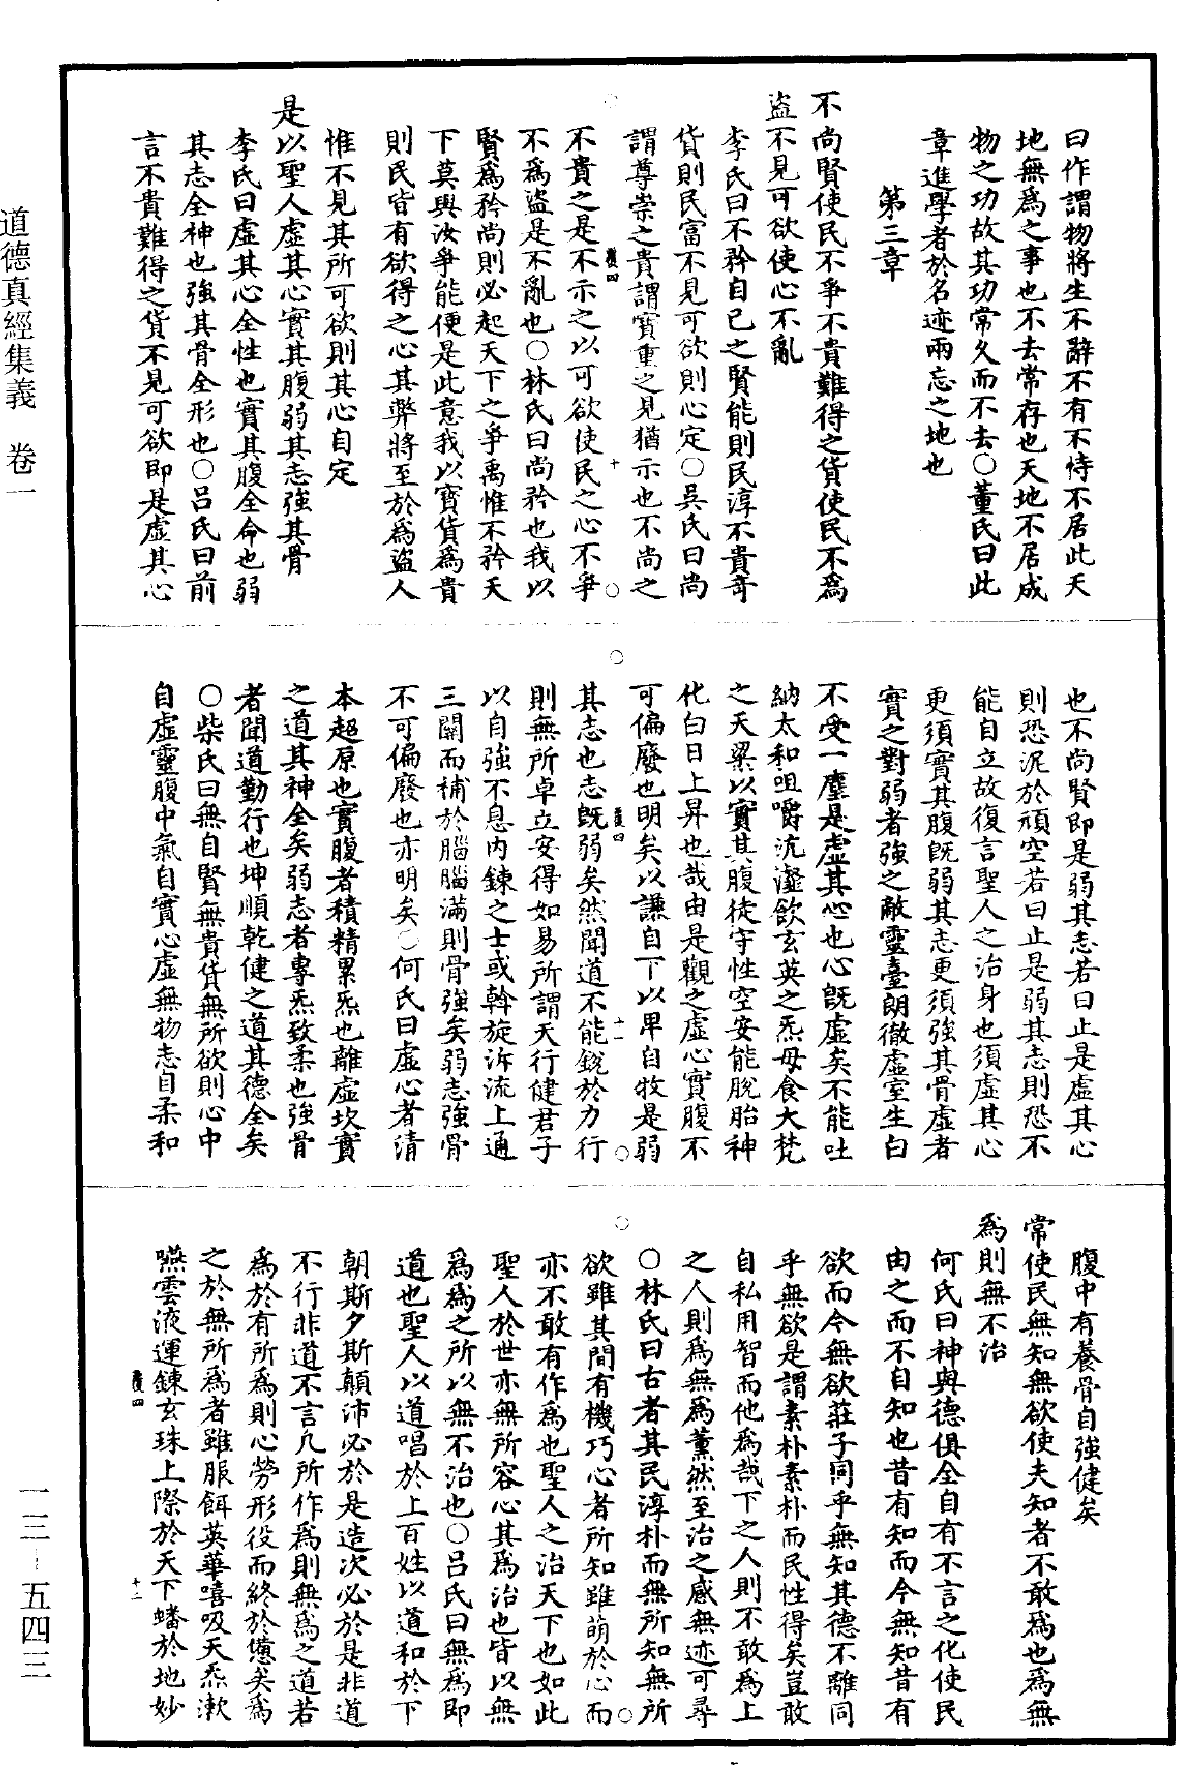 曰作謂物將生不辭不有不恃不居此天
地無爲之事也不去常存也天地不居成
物之功故其功常久而不去○董氏曰此
章進學者於名迹兩忘之地也
第三章
不尚賢使民不爭不貴難得之貨使民不爲
盜不見可欲使心不亂
李氏曰不矜自己之賢能則民淳不貴奇
貨則民富不見可欲則心定○吳氏曰尚
謂尊崇之貴謂寶重之見猶示也不尚之
不貴之是不示之以可欲使民之心不爭
不爲盜是不亂也○林氏曰尚矜也我以
賢爲矜尚則必起天下之爭禹惟不矜天
下莫與汝爭能便是此意我以寶貨爲貴
則民皆有欲得之心其弊將至於爲盜人
惟不見其所可欲則其心自定
是以聖人虛其心實其腹弱其志強其骨
李氏曰虛其心全性也實其腹全命也弱
其志全神也強其骨全形也○呂氏曰前
言不貴難得之貨不見可欲即是虛其心
也不尚賢即是弱其志若曰止是虛其心
則恐泥於頑空若曰止是弱其志則恐不
能自立故復言聖人之治身也須虛其心
更須實其腹旣弱其志更須強其骨虛者
實之對弱者強之敵靈臺朗徹虛室生白
不受一塵是虛其心也心旣虛矣不能吐
納太和咀嚼沆瀣飲玄英之炁毋食大梵
之天粱以實其腹徒守性空安能脫胎神
化白日上昇也哉由是觀之虛心實腹不
可偏廢也明矣以謙自下以卑自牧是弱
其志也志旣弱矣然聞道不能銳於力行
則無所卓立安得如易所謂天行健君子
以自強不息內鍊之士或斡旋泝流上通
三關而補於腦腦滿則骨強矣弱志強骨
不可偏廢也亦明矣○何氏曰虛心者清
本超原也實腹者積精累炁也離虛坎實
之道其神全矣弱志者專炁致柔也強骨
者聞道勤行也坤順乾健之道其德全矣
○柴氏曰無自賢無貴貨無所欲則心中
自虛靈腹中氣自實心虛無物志自柔和
腹中有養骨自強健矣
常使民無知無欲使夫知者不敢爲也爲無
爲則無不治
何氏曰神與德俱全自有不言之化使民
由之而不自知也昔有知而今無知昔有
欲而今無欲莊子同乎無知其德不離同
乎無欲是謂素朴素朴而民性得矣豈敢
自私用智而他爲哉下之人則不敢爲上
之人則爲無爲薰然至治之感無迹可尋
○林氏曰古者其民淳朴而無所知無所
欲雖其間有機巧心者所知雖萌於心而
亦不敢有作爲也聖人之治天下也如此
聖人於世亦無所容心其爲治也皆以無
爲爲之所以無不治也○呂氏曰無爲即
道也聖人以道唱於上百姓以道和於下
朝斯夕斯顛沛必於是造次必於是非道
不行非道不言凡所作爲則無爲之道若
爲於有所爲則心勞形役而終於憊矣爲
之於無所爲者雖服餌英華嘻吸天炁漱
嚥雲液運鍊玄珠上際於天下蟠於地妙
道德真經集義 卷一
一三-五四三